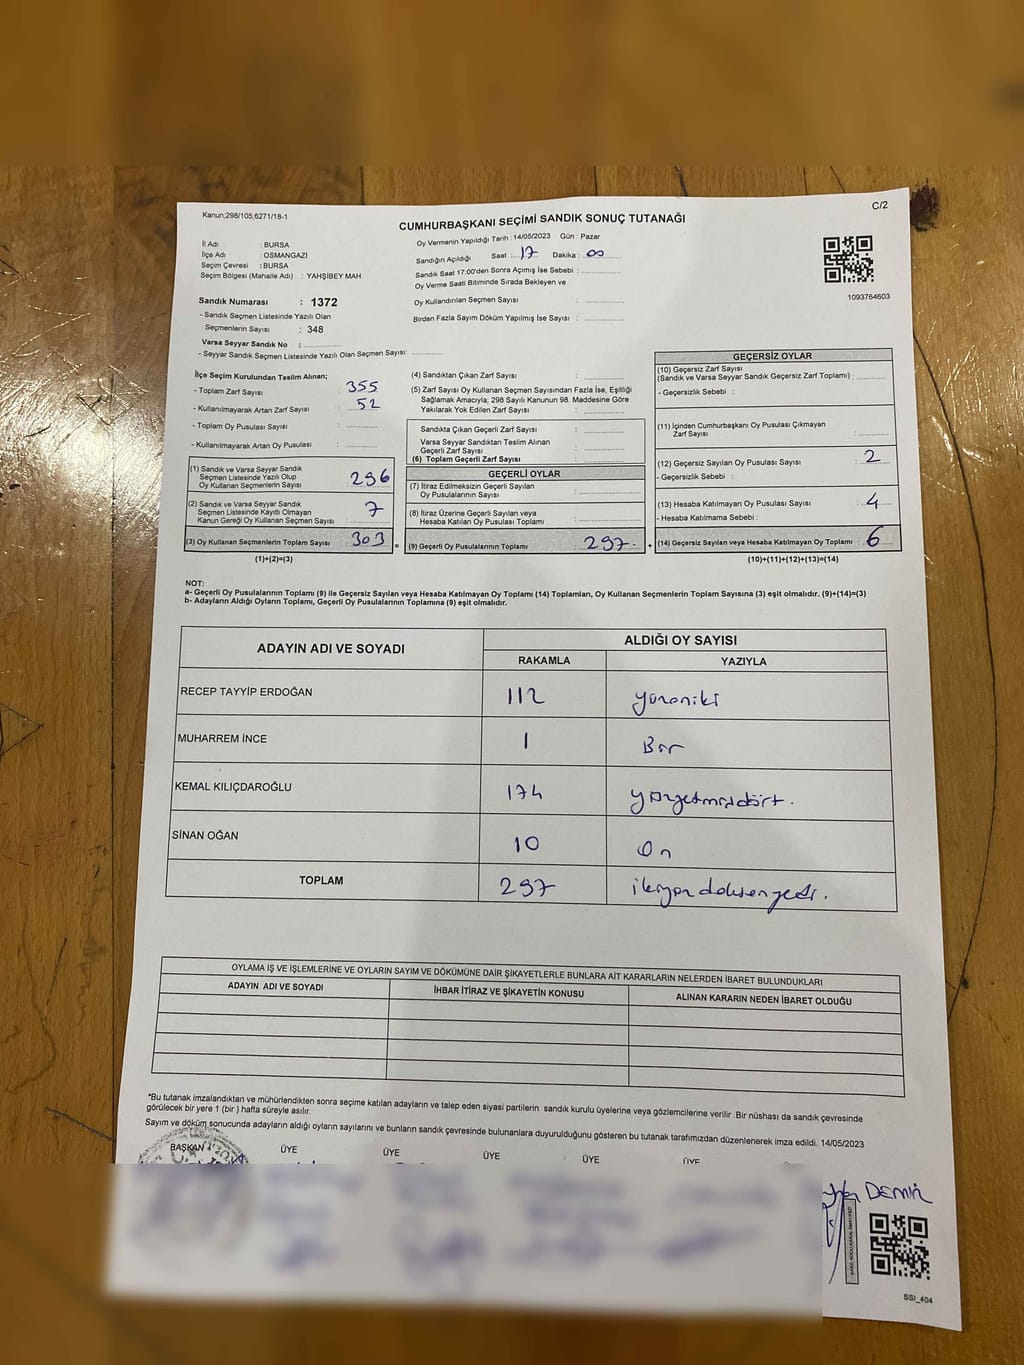 Kanun;298/105;6271/18-1
C/2
CUMHURBAŞKANI SEÇİMİ SANDIK SONUÇ TUTANAĞI
İl Adı : BURSA
İlçe Adı : OSMANGAZİ
Seçim Çevresi : BURSA
Seçim Bölgesi (Mahalle Adı) : YAHŞİBEY MAH.
Oy Vermenin Yapıldığı Tarih : 14/05/2023 Gün : Pazar
Sandığın Açıldığı Saat : 17 Dakika : 00
Sandık Saat 17:00'den Sonra Açımış İse Sebebi :
Oy Verme Saati Bitiminde Sırada Bekleyen ve
Oy Kullandırılan Seçmen Sayısı :
Birden Fazla Sayım Döküm Yapılmış İse Sayısı :
1093764603
Sandık Numarası : 1372
- Sandık Seçmen Listesinde Yazılı Olan
Seçmenlerin Sayısı : 348
Varsa Seyyar Sandık No :
- Seyyar Sandık Seçmen Listesinde Yazılı Olan Seçmen Sayısı:
İlçe Seçim Kurulundan Teslim Alınan;
- Toplam Zarf Sayısı : 355
- Kullanılmayarak Artan Zarf Sayısı : 52
- Toplam Oy Pusulası Sayısı :
- Kullanılmayarak Artan Oy Pusulası :
(1) Sandık ve Varsa Seyyar Sandık
Seçmen Listesinde Yazılı Olup
Oy Kullanan Seçmenlerin Sayısı : 296
(2) Sandık ve Varsa Seyyar Sandık
Seçmen Listesinde Kayıtlı Olmayan
Kanun Gereği Oy Kullanan Seçmen Sayısı : 7
(3) Oy Kullanan Seçmenlerin Toplam Sayısı : 303
(1)+(2)=(3)
(4) Sandıktan Çıkan Zarf Sayısı :
(5) Zarf Sayısı Oy Kullanan Seçmen Sayısından Fazla İse, Eşitliği
Sağlamak Amacıyla; 298 Sayılı Kanunun 98. Maddesine Göre
Yakılarak Yok Edilen Zarf Sayısı :
Sandıkta Çıkan Geçerli Zarf Sayısı :
Varsa Seyyar Sandıktan Teslim Alınan
Geçerli Zarf Sayısı :
(6) Toplam Geçerli Zarf Sayısı :
GEÇERLİ OYLAR
(7) İtiraz Edilmeksizin Geçerli Sayılan
Oy Pusulalarının Sayısı :
(8) İtiraz Üzerine Geçerli Sayılan veya
Hesaba Katılan Oy Pusulası Toplamı :
= (9) Geçerli Oy Pusulalarının Toplamı : 297 +
GEÇERSİZ OYLAR
(10) Geçersiz Zarf Sayısı
(Sandık ve Varsa Seyyar Sandık Geçersiz Zarf Toplamı) :
- Geçersizlik Sebebi :
(11) İçinden Cumhurbaşkanı Oy Pusulası Çıkmayan
Zarf Sayısı :
(12) Geçersiz Sayılan Oy Pusulası Sayısı : 2
- Geçersizlik Sebebi :
(13) Hesaba Katılmayan Oy Pusulası Sayısı : 4
- Hesaba Katılmama Sebebi :
(14) Geçersiz Sayılan veya Hesaba Katılmayan Oy Toplamı : 6
(10)+(11)+(12)+(13)=(14)
NOT:
a- Geçerli Oy Pusulalarının Toplamı (9) ile Geçersiz Sayılan veya Hesaba Katılmayan Oy Toplamı (14) Toplamları, Oy Kullanan Seçmenlerin Toplam Sayısına (3) eşit olmalıdır. (9)+(14)=(3)
b- Adayların Aldığı Oyların Toplamı, Geçerli Oy Pusulalarının Toplamına (9) eşit olmalıdır.
ADAYIN ADI VE SOYADI ALDIĞI OY SAYISI
RAKAMLA YAZIYLA
RECEP TAYYİP ERDOĞAN 112 yüzoniki
MUHARREM İNCE 1 Bir
KEMAL KILIÇDAROĞLU 174 yüzyetmişdört.
SİNAN OĞAN 10 On
TOPLAM 297 ikiyüzdoksanyedi.
OYLAMA İŞ VE İŞLEMLERİNE VE OYLARIN SAYIM VE DÖKÜMÜNE DAİR ŞİKAYETLERLE BUNLARA AİT KARARLARIN NELERDEN İBARET BULUNDUKLARI
ADAYIN ADI VE SOYADI İHBAR İTİRAZ VE ŞİKAYETİN KONUSU ALINAN KARARIN NEDEN İBARET OLDUĞU
*Bu tutanak imzalandıktan ve mühürlendikten sonra seçime katılan adayların ve talep eden siyasi partilerin sandık kurulu üyelerine veya gözlemcilerine verilir .Bir nüshası da sandık çevresinde
görülecek bir yere 1 (bir ) hafta süreyle asılır.
Sayım ve döküm sonucunda adayların aldığı oyların sayılarını ve bunların sandık çevresinde bulunanlara duyurulduğunu gösteren bu tutanak tarafımızdan düzenlenerek imza edildi. 14/05/2023
BAŞKAN ÜYE ÜYE ÜYE ÜYE ÜYE
DEMİR
SSI_404